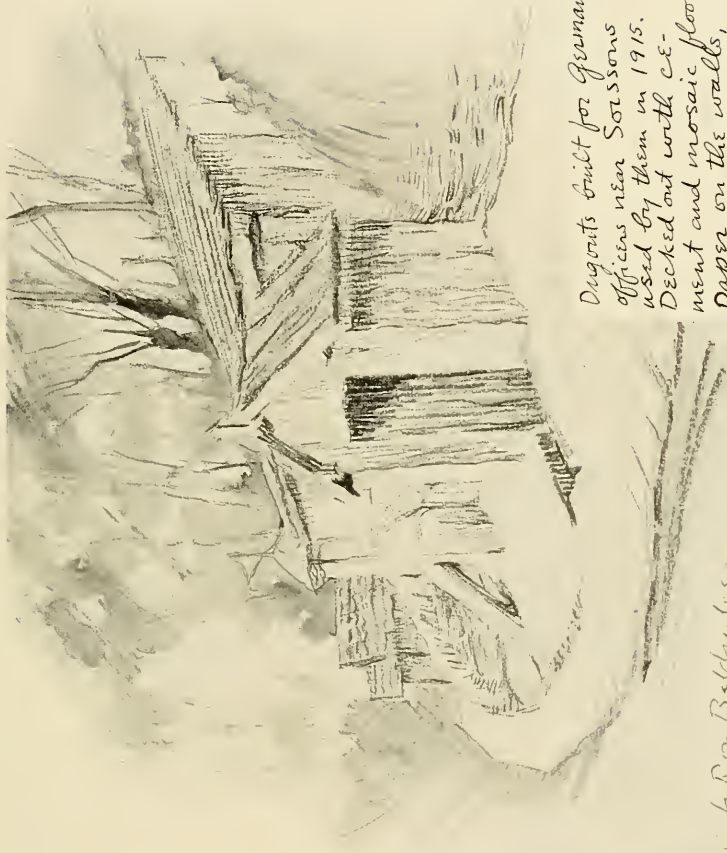 Dugouts built for German
officers near Soissons
used by them in 1915.
Decked out with ce-
ment and mosaic floo
Paper on the walls,